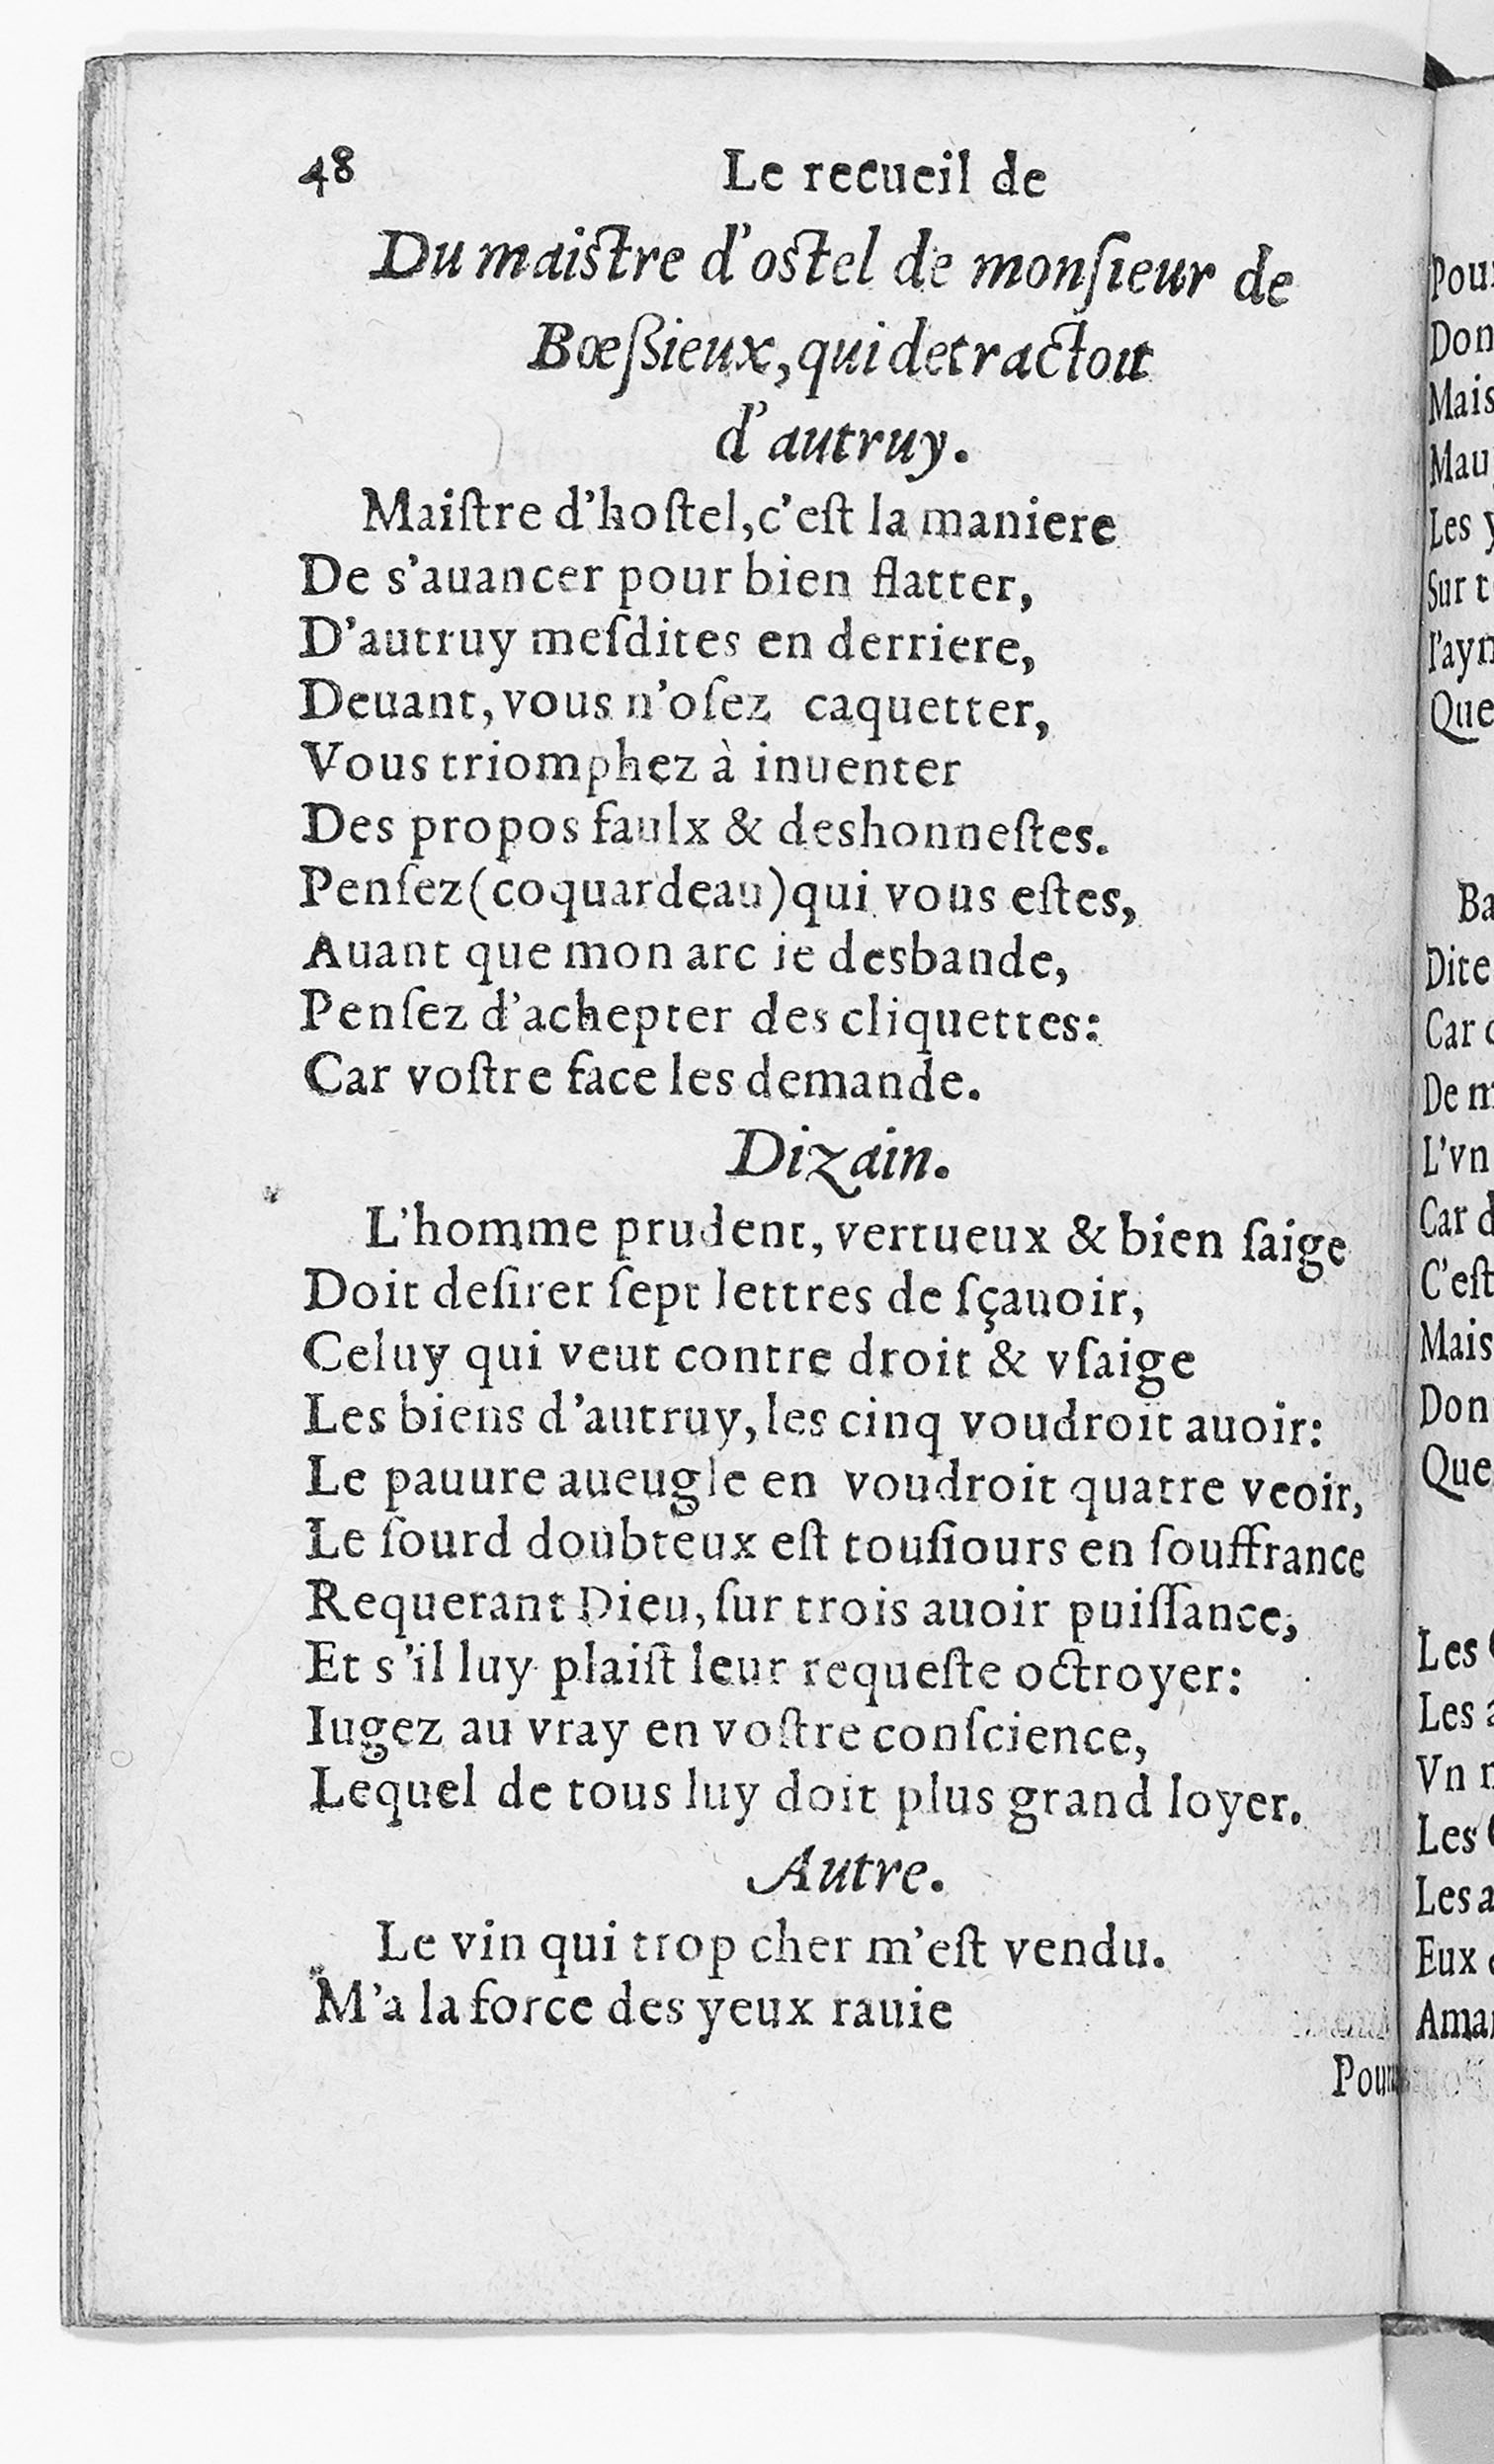 48 Le recueil de
Du maistre d'ostel de monſieur de
Bœſsieux, qui detractoit
d'autruy.
Maiſtre d'hoſtel, c'eſt la maniere
De s'auancer pour bien flatter,
D'autruy meſdites en derriere,
Deuant, vous n'oſez caquetter,
Vous triomphez à inuenter
Des propos faulx & deshonneſtes.
Penſez (coquardeau) qui vous eſtes,
Auant que mon arc ie desbande,
Penſez d'achepter des cliquettes:
Car voſtre face les demande.
Dizain.
L'homme prudent, vertueux & bien ſaige
Doit deſirer ſept lettres de ſçauoir,
Celuy qui veut contre droit & vſaige
Les biens d'autruy, les cinq voudroit auoir:
Le pauure aueugle en voudroit quatre veoir,
Le ſourd doubteux eſt touſiours en ſouffrance
Requerant Dieu, ſur trois auoir puiſſance,
Et s'il luy plaiſt leur requeſte octroyer:
Iugez au vray en voſtre conſcience,
Lequel de tous luy doit plus grand loyer.
Autre.
Le vin qui trop cher m'eſt vendu.
M'a la force des yeux rauie
Pour
Don
Mais
Les
Sur
Que
Car
De
L'vn
Car
C'eſt
Mais
Don
Que
Les
Les
Vn
Les
Les
Eux